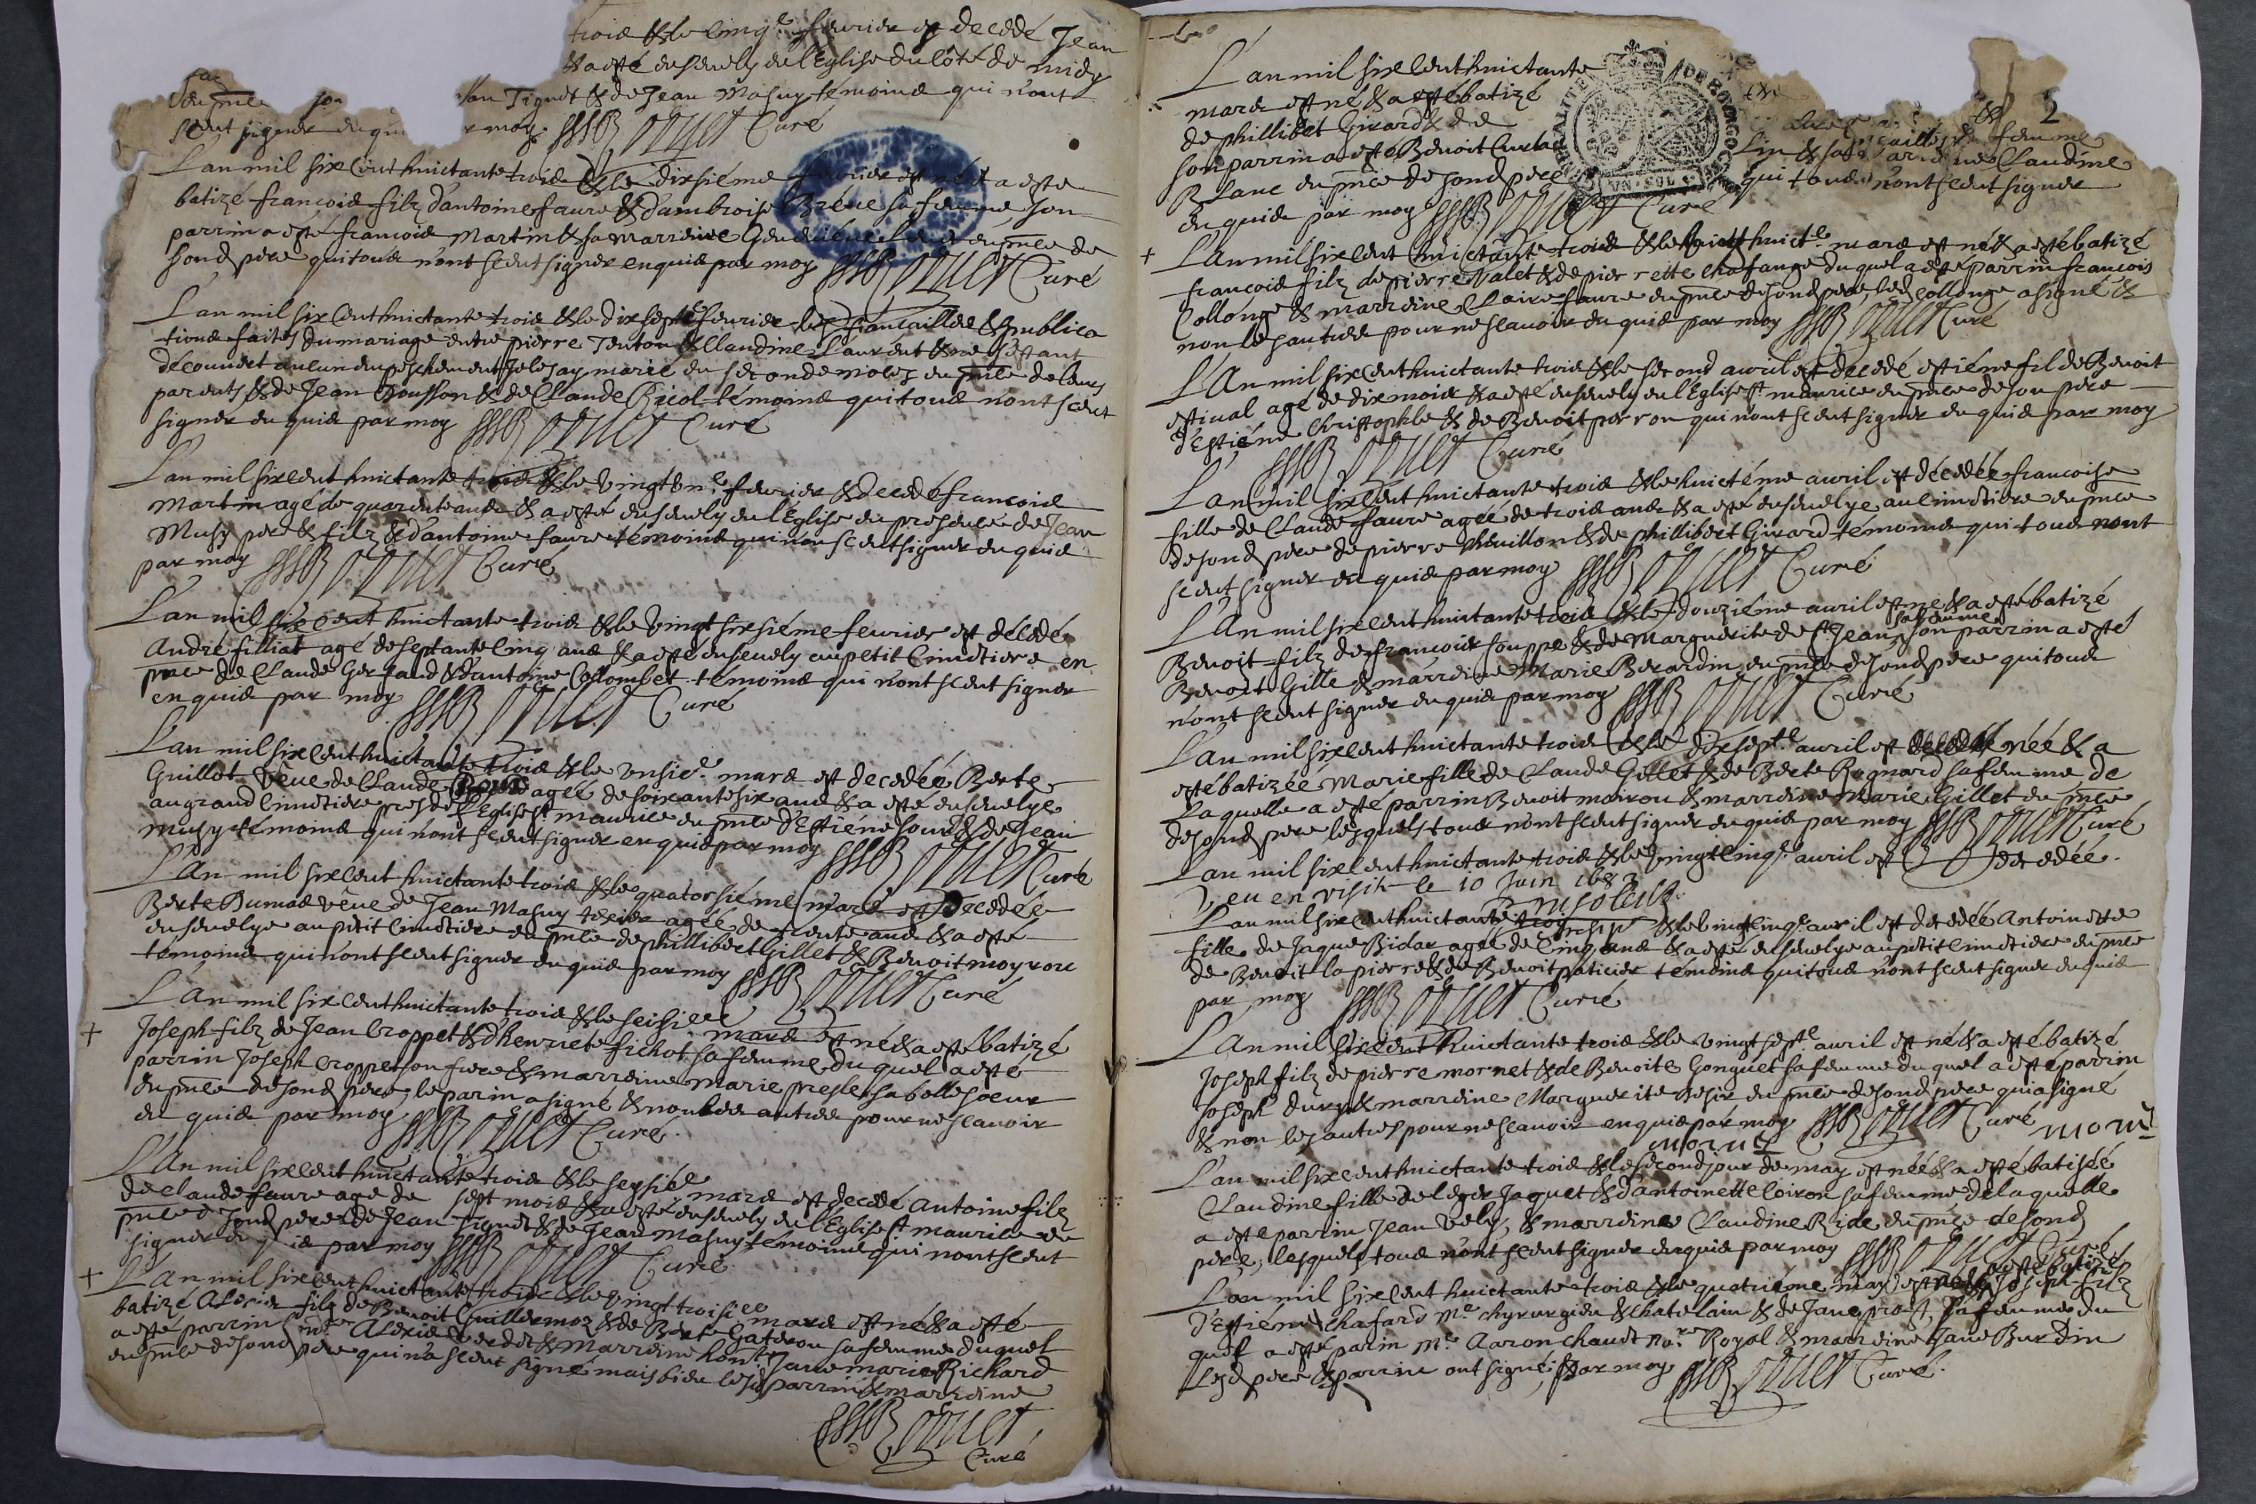 trois & le cinqe fevrier est decedé Jean
& a esté ensevely en l'Eglise du côté de midy
Tignet & de Jean Masuy témoins qui n'ont
sceut signer en qui par moy Curé
L'an mil six cent huictante trois & le dixsiéme fevrier est né & a esté
batizé francois filz d'antoine faure & d'ambroise Bréne sa femme, son
parrin a esté francois Martin & sa marreine en pnce de
sond pere qui tous n'ont sceut signer enquis par moy Curé
L'an mil six cent huictante trois & le dix septe fevrier les fiancailles & publica
tions faites du mariage entre pierre Tenton & Claudine Laurent & ne s'estant
découvert aucun empeschement Je les ay marié en se conde noces en pnce de leurs
parents & de Jean Rousson & de Claude Ricol témoins qui tous n'ont sceut
signer en quis par moy Curé
L'an mil six cent huictante trois & le vingt vne fevrier & decedé francois
Martin agé de quarente ans & a esté ensevely en l'Eglise en presence de Jean
Musy pere & filz & d'antoine faure témoins qui n'on sceut signer en quis
par moy Curé
L'an mil six cent huictante trois & le vingt sixsiéme fevrier est décedé
André filliat agé de septante cinq ans & a esté ensevely au petit Cimetiere en
pnce de Claude Gertaud & d'antoine Collombet témoins qui n'ont sceut signer
en quis par moy Curé
L'an mil six cent huictante trois & le vnsie mars est decedée Berte
Guillot veve de Claude agée de soixante six ans & a esté ensevelye
au grand Cimetiere pres de l'Eglise st maurice en pnce d'Estiéne & de Jean
musy témoins qui n'ont sceut signer enquis par moy Curé
L'An mil six cent huictante trois & le quatorsiéme mars est decedée
Berte Dumas vêve de Jean Masuy texier agée de trente ans & a esté
ensevelye au petit Cimetiere en pnce de phillibert Gillet & Benoit moyrou
témoins qui n'ont sceut signer en quis par moy Curé
L'An mil six cent huictante trois & le seisiee mars est né & a esté batizé
Joseph filz de Jean Croppet & d'henriete fichot sa femme du quel a esté
parrin Joseph Croppet son frere & marreine Marie presle sa belle soeur
en pnce de sond pere, le parin a signé & non les autres pour ne scavoir
en quis par moy Curé
L'An mil six cent huictante trois & le seysiée mars est decedé Antoine filz
de Claude faure agé de sept mois & a esté ensevely en l'Eglise st maurice en
pnce de sond pere & de Jean Tignet & de Jean Masuy témoins qui n'ont sceut
signer en quis par moy Curé
L'an mil six cent huictante trois & le vingt troisiee mars est né & a esté
batizé Alexis filz de Benoit Guillermoz & de Berte Gateron sa femme duquel
a esté parrin mre Alexis & marreine honte Jane marie Richard
en pnce de sond pere qui n'a sceut signé mais bien lesd parrin & marreine
Curé
2
L'an mil six cent huictante
mars est né & a esté batizé
de phillibert Girard & de
son parrin a esté Benoit
Blanc en pnce de sond pere qui tous n'ont sceut signer
en quis par moy Curé
L'an mil six cent huictante trois & le huicte mars est né & a esté batizé
francois filz de pierre Valet & de pierrette Chafange du quel a esté parrin francois
Collonge & marreine Claire faure en pnce de sond pere, led Collonge a signé &
non les autres pour ne scavoir en quis par moy Curé
L'An mil six cent huictante trois & le second avril est decedé estiéne fil de Benoit
estival agé de dix mois & a esté ensevely en l'Eglise st maurice en pnce de son pere
d'Estiéne Christophle & de Benoit perron qui n'ont sceut signer en quis par moy
Curé
L'an mil six cent huictante trois & le huictéme avril est décedée francoise
fille de Claude faure agée de trois ans & a esté ensevelye au cimetiere en pnce
de sond pere de pierre & de phillibert Girard témoins qui tous n'ont
sceut signer en quis par moy Curé
L'An mil six cent huictante trois & le douziéme avril est né & a esté batizé
Benoit filz de francois souppe & de Marguerite de st Jean sa femme, son parrin a esté
Benoit Gille & marreine Marie Berardin en pnce de sond pere qui tous
n'ont sceut signer en quis par moy Curé
L'an mil six cent huictante trois & le dixsepte avril est née & a
esté batizée Marie fille de Claude Gillet & de Berte Rognard sa femme de
laquelle a esté parrin Benoit moirou & marreine Marie Gillet en pnce
de sond pere lesquels tous n'ont sceut signer en quis par moy Curé
L'an mil six cent huictante trois & le vingt cinqe avril est decedée.
Veu en visite le 10 Juin 1683
L'an mil six cent huictante trois & le vingt cinqe avril est decedée Antoinette
fille de Jaque Bidar agée de cinq ans & a esté ensevelye au petit cimetiere en pnce
de Benoit la pierre & de Benoit paticier témoins qui tous n'ont sceut signer en quis
par moy Curé
L'An mil six cent huictante trois & le vingt septe avril est né & a esté batizé
Joseph filz de pierre mornet & de Benoite Gonguet sa femme du quel a esté parrin
Joseph Dury & marreine Marguerite Vesir en pnce de sond pere qui a signé
& non les autres pour ne scavoir en quis par moy Curé
L'an mil six cent huictante trois & le second jour de may est née & a esté batisée
Claudine fille de leger Jaquet & d'antoinette Coiron sa femme de laquelle
a esté parrin Jean Vely, & marreine Claudine Ride en pnce de sond
pere, lesquels tous n'ont sceut signer en quis par moy Curé
L'an mil six cent huictante trois & le quatriéme may est né & a esté batizé Joseph filz
d'Estiéne Chafard me chyrurgien & chatelain & de Jane prost, sa femme du
quel a esté parin Me Aaron Chaudt nore Royal & marreine Jane Burdin
lesd pere & parrin ont signé, par moy Curé.